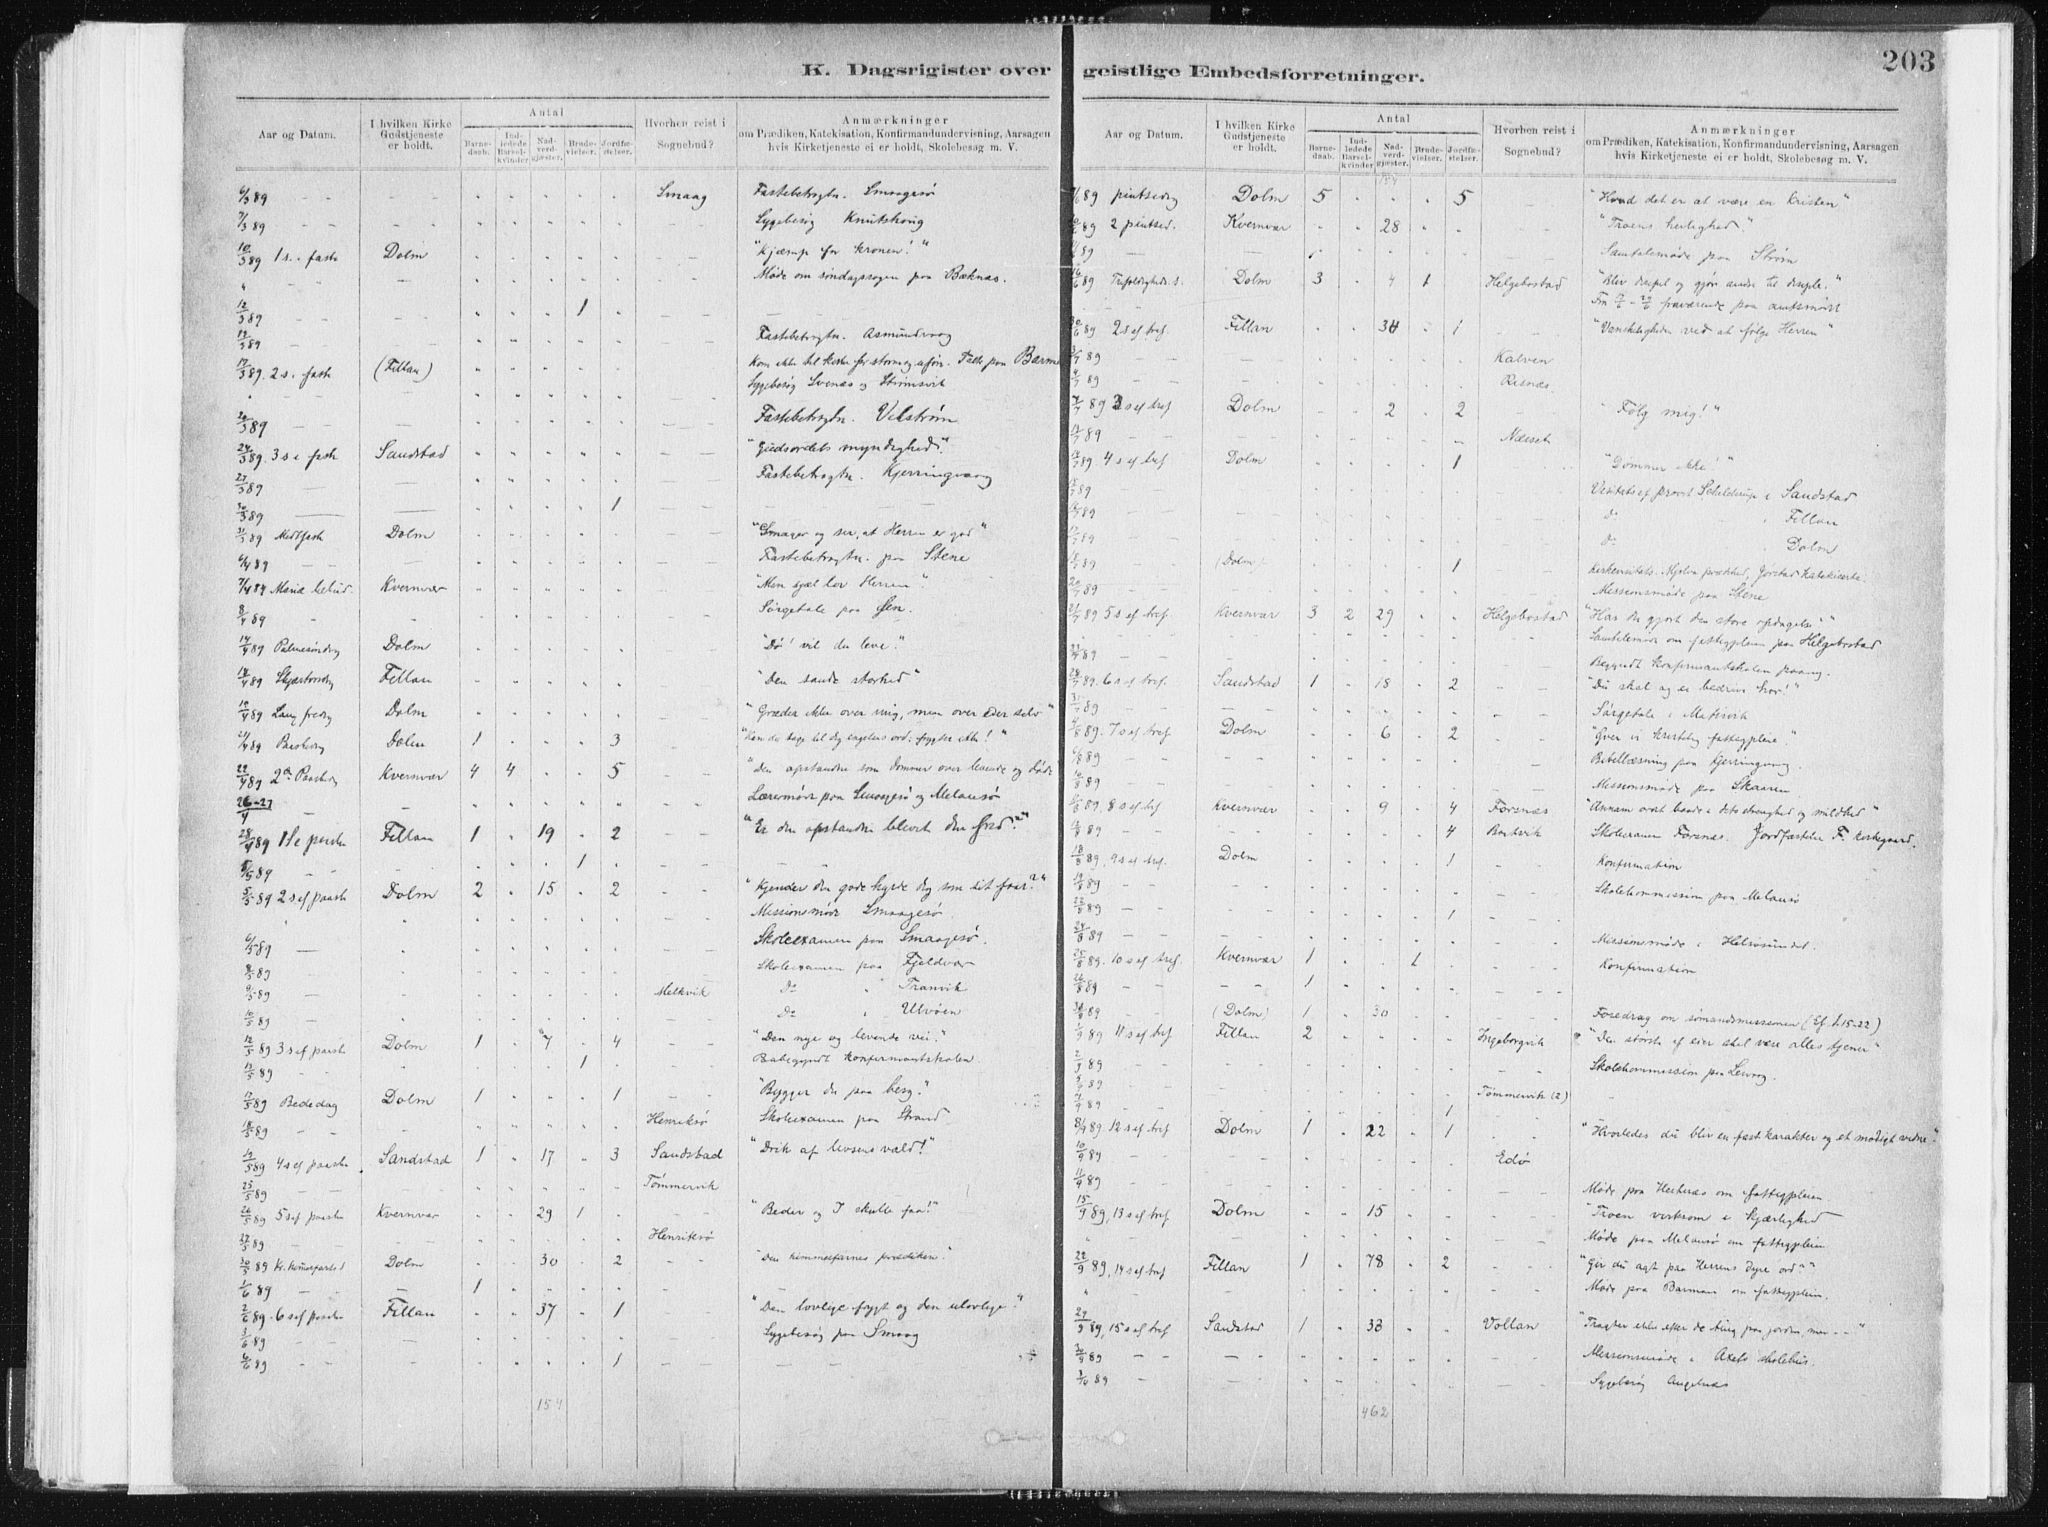 K. Dagsrigister over geistlige Embedsforretninger.
203
Aar og Datum.
I hvilken Kirke Gudstjeneste er holdt.
Antal
Barnedaab.
Indledede Barselkvinder
Nadverdgjæster.
Brudevielser.
Jordfæstelser.
Hvorhen reist i Sognebud?
Anmærkninger
om Prædiken, Katekisation, Konfirmandundervisning, Aarsagen
hvis Kirketjeneste ei er holdt, Skolebesøg m. V.
6/3 89 Smaag Fastebetragtn. Smaagesø
7/3 89 Sygebesøg Knutshoug
10/3 89 1 s. i faste Dolm "Kjæmp for kronen!"
Møde om søndagssagen paa Bæknæs.
12/3 89 1
13/3 89 Fastebetragtn. Asmundvaag
17/3 89. 2 s. i faste (Fillan)
Sygebesøg Svenæs og Strømsvik
20/3 89 Fastebetragtn. Vikstrøm
24/3 89. 3 s i faste Sandstad "Gudsordets myndighed".
27/3 89 Fastebetragtn. Kjerringvaag
30/3 89 1
31/3 89 Midtfaste Dolm "Smager og ser, at Herren er god"
6/4 89 Fastebetragtn. paa Stene
7/4 89 Mariæ bebud. Kvernvær "Min sjæl lov Herren".
8/4 89 Sørgetale paa Øen.
14/4 89 Palmesøndag Dolm "Dø! vil du leve".
18/4 89 Skjærtorsdag Fillan "Den sande storhed"
19/4 89 Lang fredag Dolm "Græder ikke over mig, men over eder selv"
21/4 89 Paaskedag Dolm 1 3
22/4 89 2den Paaskedag Kvernvær 4 4 5 "Den opstandne som dommer over levende og døde
26-27/4 Læremøde paa Smaagesø og Melansø
28/4 89 1 S e paaske Fillan 1 19 2 "Er den opstandne blevet din fred?"
/5 89 1
5/5 89 2 s ef paaske Dolm 2 15 2 "Kjender den gode hyrde dig som sit faar?"
Missionsmøde Smaagesø.
6/5 89 Skoleexamen paa Smaagesø.
8/5 89 Skoleexamen paa Fjeldvær
9/5 89 Melkvik Do " Tranvik
10/5 89 Do " Ulvøen
12/5 89 3 s ef paaske Dolm 1 7 4 "Den nye og levende vei".
13/5 89 1 Konfirmantskolen.
17/5 89 Bededag Dolm 1 1 "Bygger du paa berg?"
18/5 89 Henriksø Skoleexamen paa Strand
19/5 89 4 s ef paaske Sandstad 1 17 3 Sandstad "Drik af livsens væld!"
25/5 89 Tømmervik
26/5 89 5 s ef paaske Kvernvær 29 1 "Beder og I skulle faa!"
27/5 89 Henriksø
30/5 89 Kr. himmelfartsd Dolm 30 2 "Den himmelfarnes prædiken"
1/6 89 1
2/6 89. 6 s ef paaske Fillan 37 1 "Den lovlige frygt og den ulovlige."
3/6 89 Sygebesøg paa Smaag
6/6 89 1
154
Aar og Datum.
I hvilken Kirke Gudstjeneste er holdt.
Antal
Barnedaab.
Indledede Barselkvinder
Nadverdgjæster.
Brudevielser.
Jordfæstelser.
Hvorhen reist i Sognebud?
Anmærkninger
om Prædiken, Katekisation, Konfirmandundervisning, Aarsagen
hvis Kirketjeneste ei er holdt, Skolebesøg m. V.
9/6 89 pintsedag Dolm 5 5 "Hvad det er at være en kristen"
10/6 89 2 pintsed. Kvernvær 28 "Troens herlighed."
/6 89 Samtalemøde paa Strøm
16/6 89 Trefoldigheds. s. Dolm 3 4 1 Helgebostad "Bliv discipel og gjør andre til disciple."
fraværende paa amtsmødet
30/6 89 2 s ef tref Fillan 34 1 "Vanskeligheden ved at følge Herren"
3/7 89 Kalven
4/7 89 Risnæs
7/7 89 3 s ef tref Dolm 2 2 "Følg mig!"
/7 89 Næsset
14/7 89 4 s ef tref Dolm 1 "Dømmer ikke!"
/7 89 Visitats af provst Schelderup i Sandstad
/7 89 Do " Fillan
17/7 89 Do " Dolm
/7 89 (Dolm) 1
20/7 89 Missionsmøde paa Stene
21/7 89 5 s ef tref. Kvernvær 3 2 29 Helgebostad "Har du gjort den store opdagelse?"
Samtalemøde om fattigpleien paa Helgebostad
23/7 89 Begyndt Konfirmantskolen
28/7 89. 6 s ef tref. Sandstad 1 18 2 "Du skal og ei bedrive hor!"
31/7 89 Sørgetale i
4/8 89. 7 s ef tref Dolm 6 2 "Øver vi kristelig fattigpleie"
6/8 89 Bibellæsning paa Kjerringvaag.
10/8 89 Missionsmøde paa Skaaren.
11/8 89. 8 s ef tref Kvernvær 9 4 Forsnæs
/8 89 4 Bortvik Skoleexamen Forsnæs. Jordfæstelse F. kirkegaard.
18/8 89. 9 s ef tref. Dolm 1 Konfirmation
19/8 89 Skolekommission paa Melansø
22/8 89 1
24/8 89 Missionsmøde i Helsøsundet.
25/8 89. 10 s ef tref. Kvernvær 1 1 Konfirmation
26/8 89 1
30/8 89 (Dolm) 1 30 Foredrag om sømandsmissionen (Ef. 1.15-22)
1/9 89 11 s ef tref Fillan 2 Ingeborgvik "Den største af eder skal være alles tjener"
2/9 89 Skolekommission paa Levaag.
5/9 89 Tømmervik (2)
7/9 89 1
8/9 89. 12 s ef tref Dolm 1 22 1 "Hvorledes du bliv en fast karakter og et modigt vidne".
10/9 89 Edø
11/9 89 Møde paa Hestnæs om fattigpleien.
15/9 89, 13 s ef tref Dolm 15 "Troen virksom i kjærlighed
Møde paa Melansø om fattigpleien
22/9 89, 14 s ef tref Fillan 1 78 2 "Gir du agt paa Herrens dyre ord?"
Møde paa Barman om fattigpleien.
29/9 89, 15 s ef tref Sandstad 1 33 Vollan "Tragter ikke efter de ting paa jorden, men --"
30/9 89 Missionsmøde i Axets skolehus.
/10 89 Sygebesøg
462